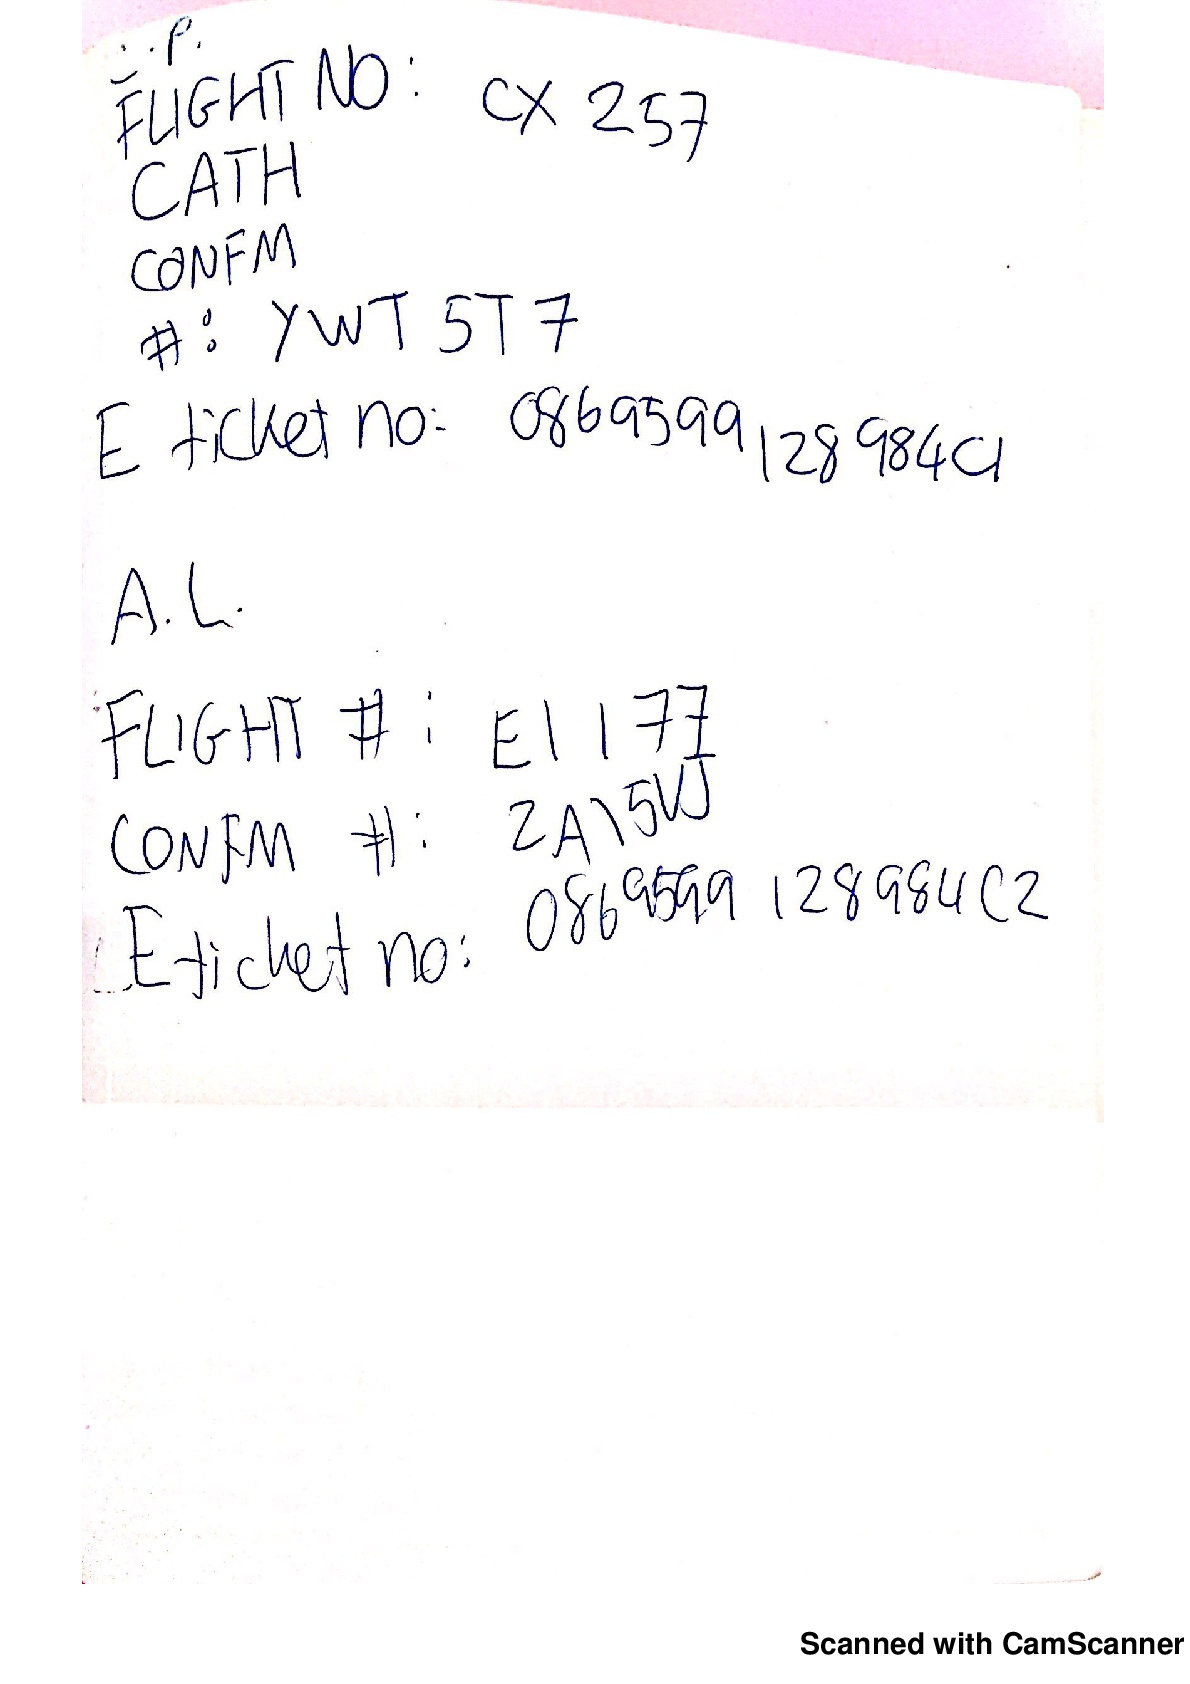 P.
FLIGHT NO: CX 257
CATH
CONFM
#: YWT5T7
E ticket no: 0869599128984C1
A.L.
FLIGHT #: EI 177
CONFM #: 2A15WJ
E ticket no: 0869599128984C2
Scanned with CamScanner